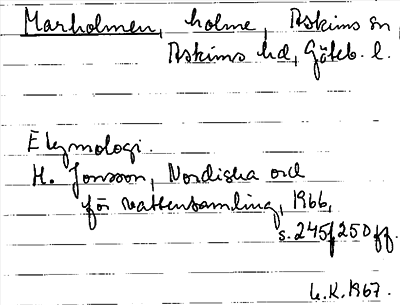 Marholmen, holme, Askims sn,
Askims hd, Göteb. l.
Etymologi.
H. Jonsson, Nordiska ord
för vattensamling, 1966,
s. 245f 250ff.
1967.